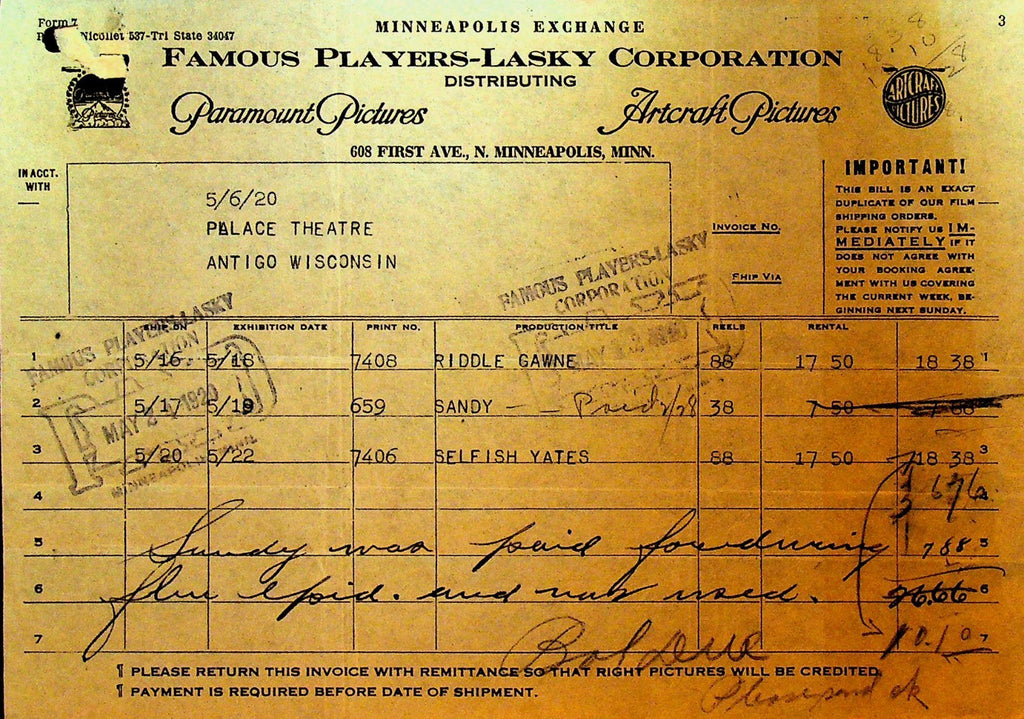 Form 7
Nicollet 537-Tri State 34047
MINNEAPOLIS EXCHANGE
3
FAMOUS PLAYERS-LASKY CORPORATION
DISTRIBUTING
Paramount Pictures
Artcraft Pictures
ARTCRAFT PICTURES
608 FIRST AVE., N. MINNEAPOLIS, MINN.
IN ACCT. WITH
5/6/20
PALACE THEATRE
ANTIGO WISCONSIN
INVOICE NO.
SHIP VIA
IMPORTANT!
THIS BILL IS AN EXACT
DUPLICATE OF OUR FILM
SHIPPING ORDERS.
PLEASE NOTIFY US IM-
MEDIATELY IF IT
DOES NOT AGREE WITH
YOUR BOOKING AGREE-
MENT WITH US COVERING
THE CURRENT WEEK, BE-
GINNING NEXT SUNDAY.
FAMOUS PLAYERS-LASKY
CORPORATION
FAMOUS PLAYERS-LASKY
CORPORATION
MAY 1920
MINNEAPOLIS
SHIP ON EXHIBITION DATE PRINT NO. PRODUCTION TITLE REELS RENTAL
1 5/16 5/18 7408 RIDDLE GAWNE 88 17 50 18 38 1
2 5/17 5/19 659 SANDY - - Paid 38 7 50 7 88
3 5/20 5/22 7406 SELFISH YATES 88 17 50 18 38 3
4 676
5 Sandy was paid for during 788 5
6 flu epid. and not used. 6
7 10.10 7
Bal Due
Please send ck
¶ PLEASE RETURN THIS INVOICE WITH REMITTANCE SO THAT RIGHT PICTURES WILL BE CREDITED.
¶ PAYMENT IS REQUIRED BEFORE DATE OF SHIPMENT.